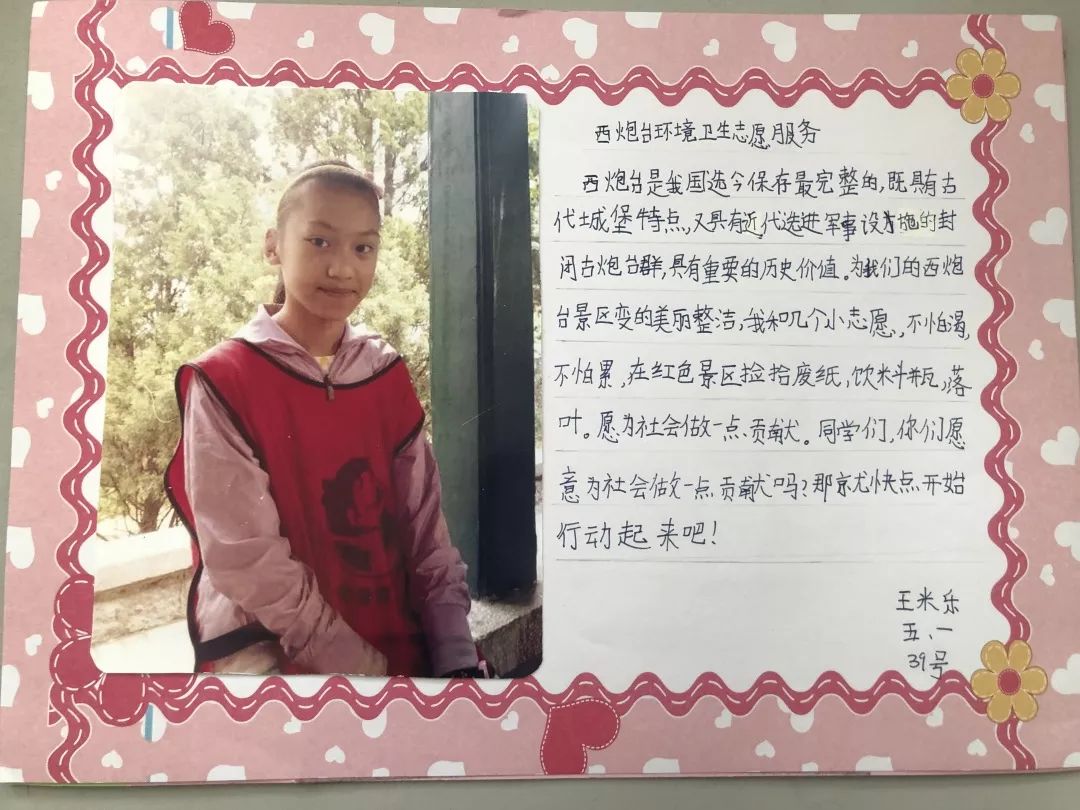 西炮台环境卫生志愿服务
西炮台是我国迄今保存最完整的,既具有古
代城堡特点,又具有近代选进军事设施的封
闭古炮台群,具有重要的历史价值。为我们的西炮
台景区变的美丽整洁,我和几个小志愿,不怕渴,
不怕累,在红色景区捡拾废纸,饮料瓶,落
叶。愿为社会做一点贡献。同学们,你们愿
意为社会做一点贡献吗?那就快点开始
行动起来吧!
王米乐
五、一
39号